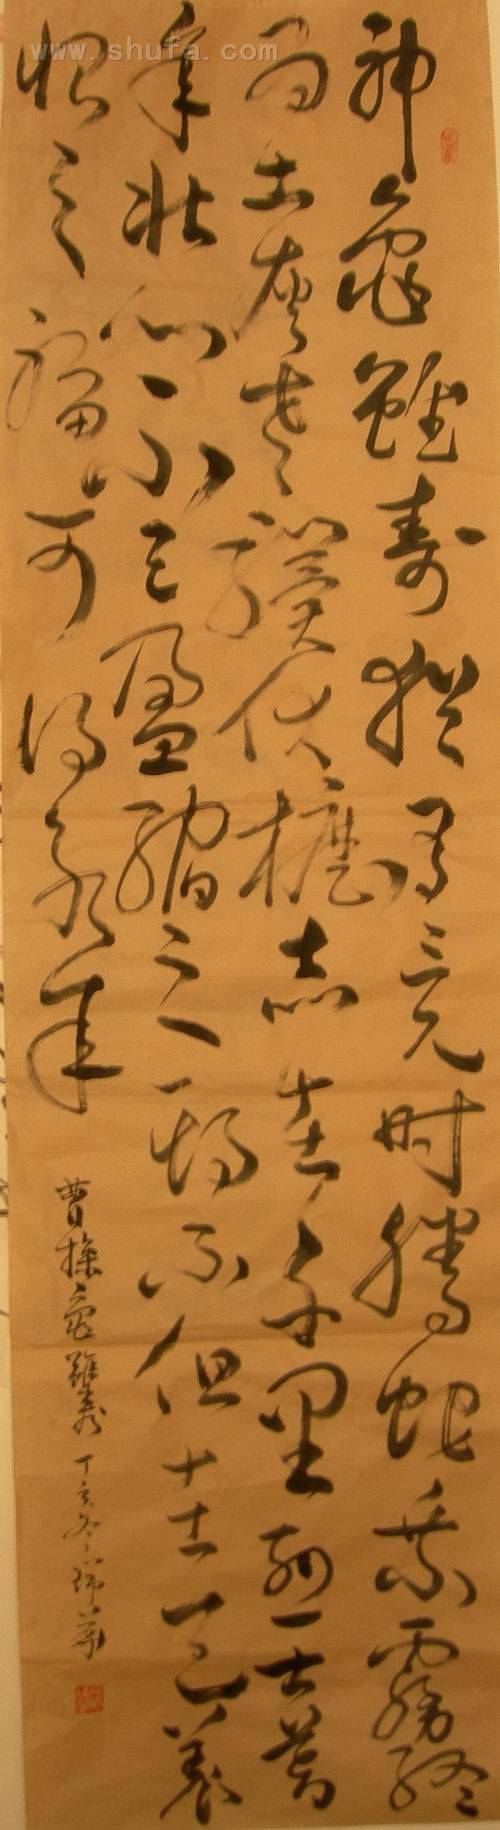 www.shufa.com
神龜雖壽猶有竟时騰蛇乘霧終
為土灰老驥伏櫪志在千里烈士暮
年壯心不已盈縮之期不但在天養
怡之福可得永年
曹操龜雖壽 丁亥冬